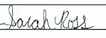 Sarah Ross